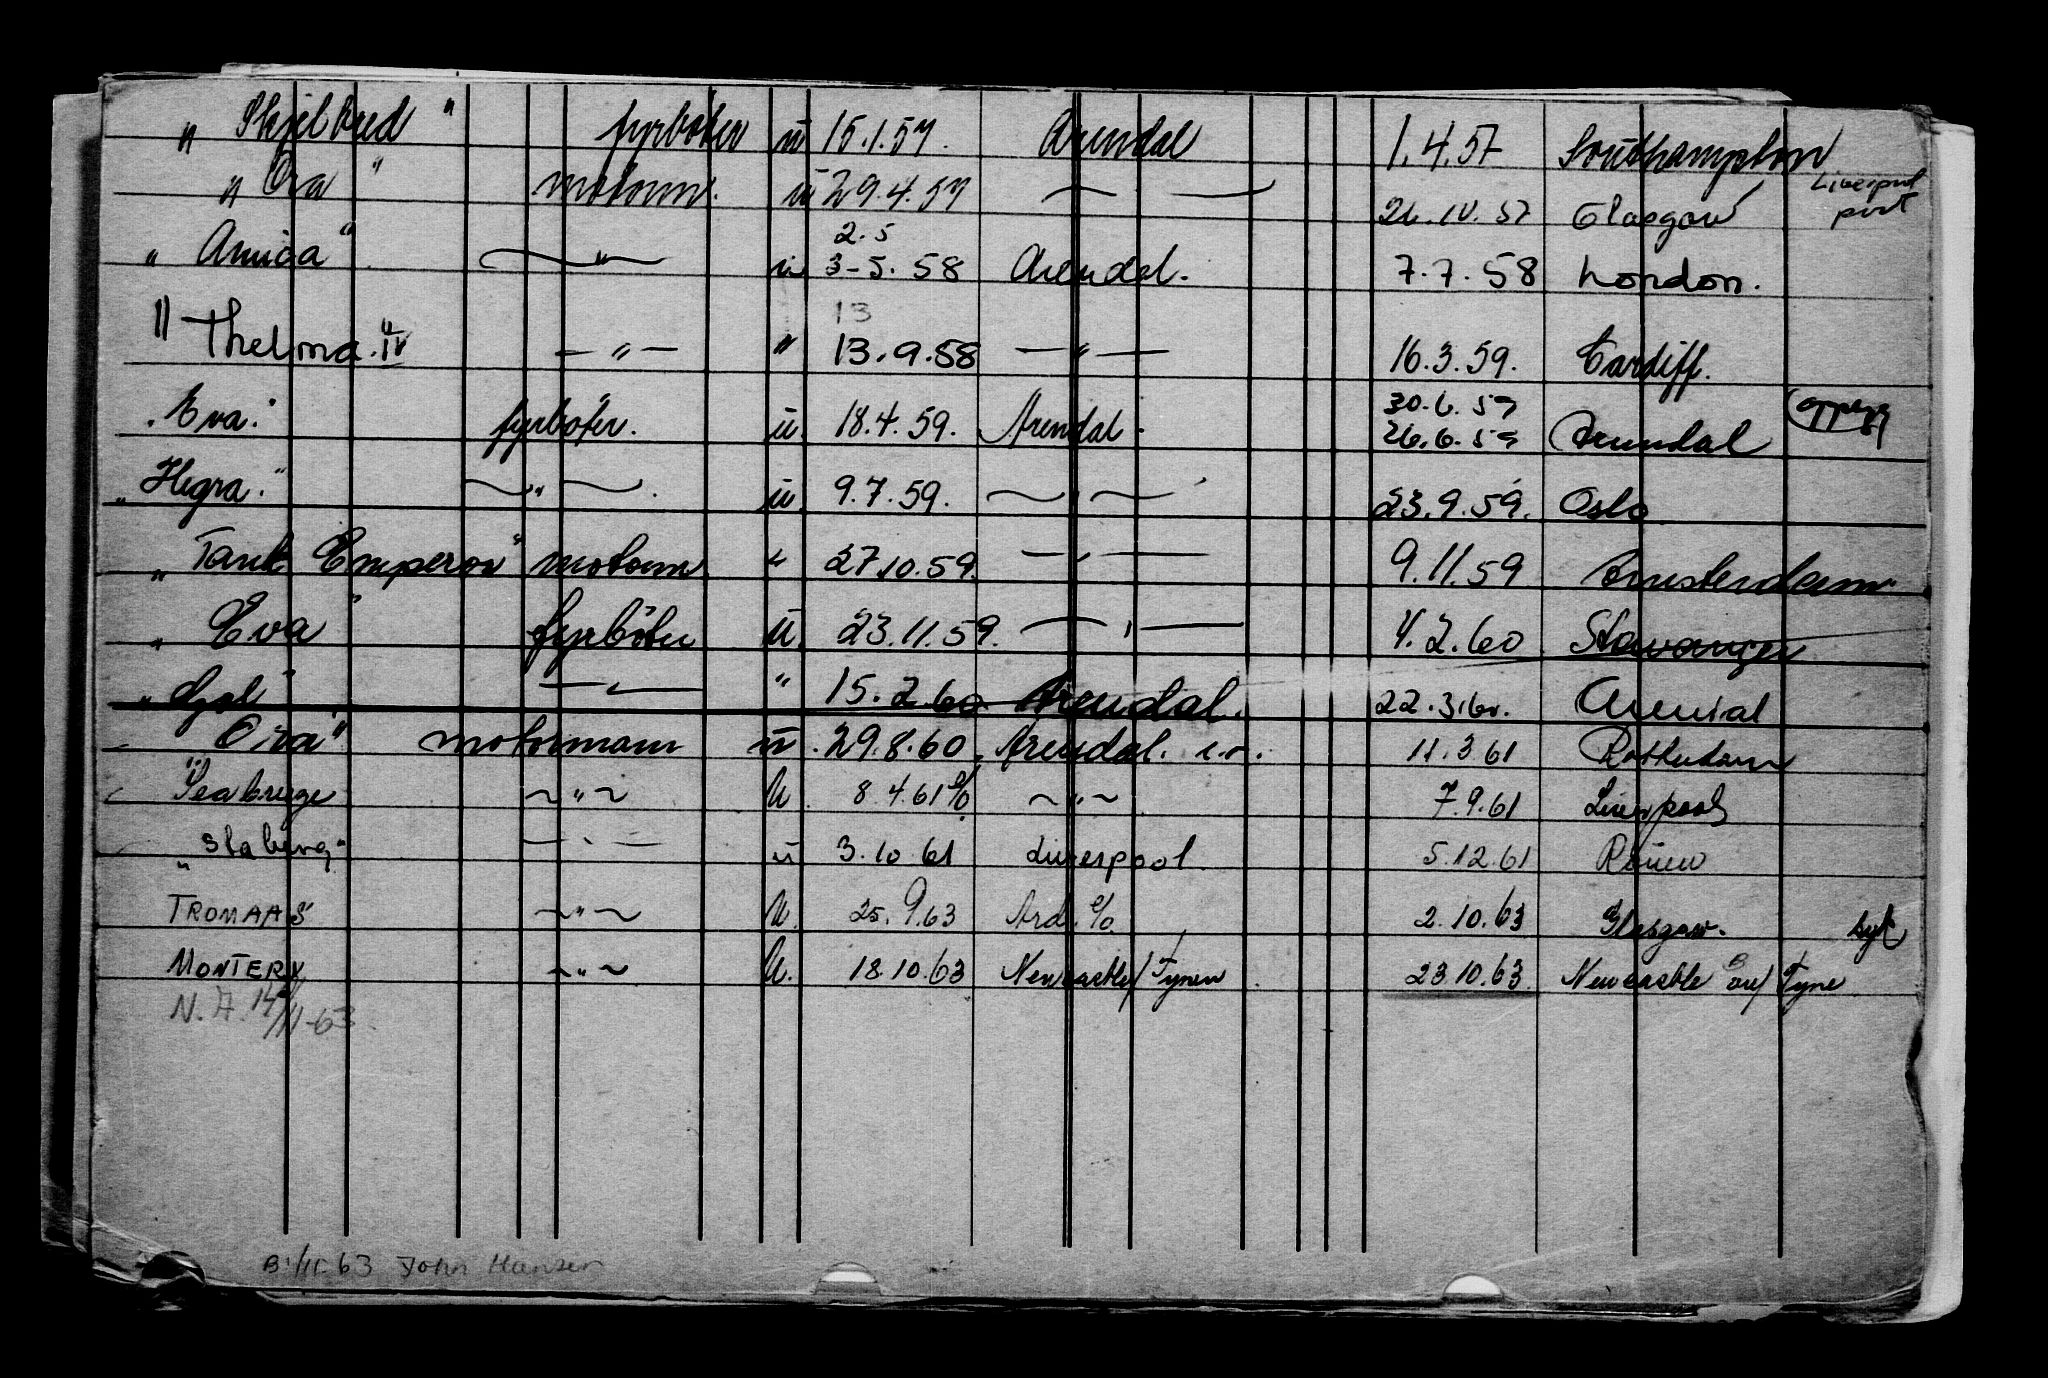 " Skjelbred " fyrböter ü 15.1.57. Arendal 1.4.57 Southampton
" Ora " motorm. ü 29.4.57 — — 26.10.57 Glasgow Liverpool
2.5
" Amica " — " — ü 3-5.58 Arendal. 7.7.58 London.
13
" Thelma. IV " — " — " 13.9.58 — " — 16.3.59. Cardiff.
30.6.59
" Eva." fyrböter. ü. 18.4.59. Arendal. 26.6.59 Arendal
" Hegra." — " — ü. 9.7.59. — " — 23.9.59. Oslo
" Tank Emperor " motorm " 27.10.59. — " — 9.11.59 Amsterdam
" Eva " fyrböter ü. 23.11.59. — " — 4.2.60 Stavanger
— " — " 15.2.60 Arendal. 22.3.60. Arendal
Ora " motormann ü. 29.8.60. Arendal. 11.3.61 Rotterdam
— " — ü. 8.4.61 % — " — 7.9.61 Liverpool
" Staberg " — " — ü 3.10.61 Liverpool 5.12.61 Rouen
TROMAAS " — " — ü. 25.9.63 Ard. % 2.10.63 Glasgow. syk
MONTERY — " — ü. 18.10.63 Newcastle/Tynen 23.10.63. Newcastle on/Tyne
N.A. 14/11-63.
B 1/11-63 John Hansen